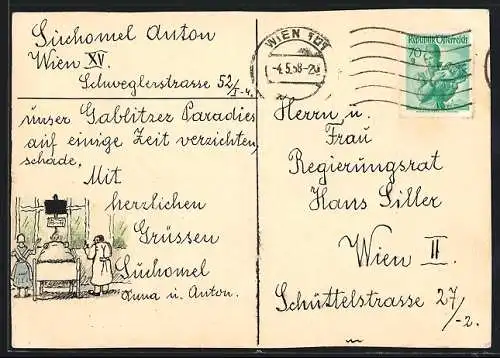 Süchomel Anton
Wien XV.
Schweglerstrasse 52/I-4.
unser Gablitzer Paradies
auf einige Zeit verzichten,
schade,
Mit
herzlichen
Grüssen
Süchomel
Anna u. Anton.
WIEN 101
-4.5.58-20
Republik Österreich
70
Herrn u.
Frau
Regierungsrat
Hans Siller
Wien II.
Schüttelstrasse 27/-2.